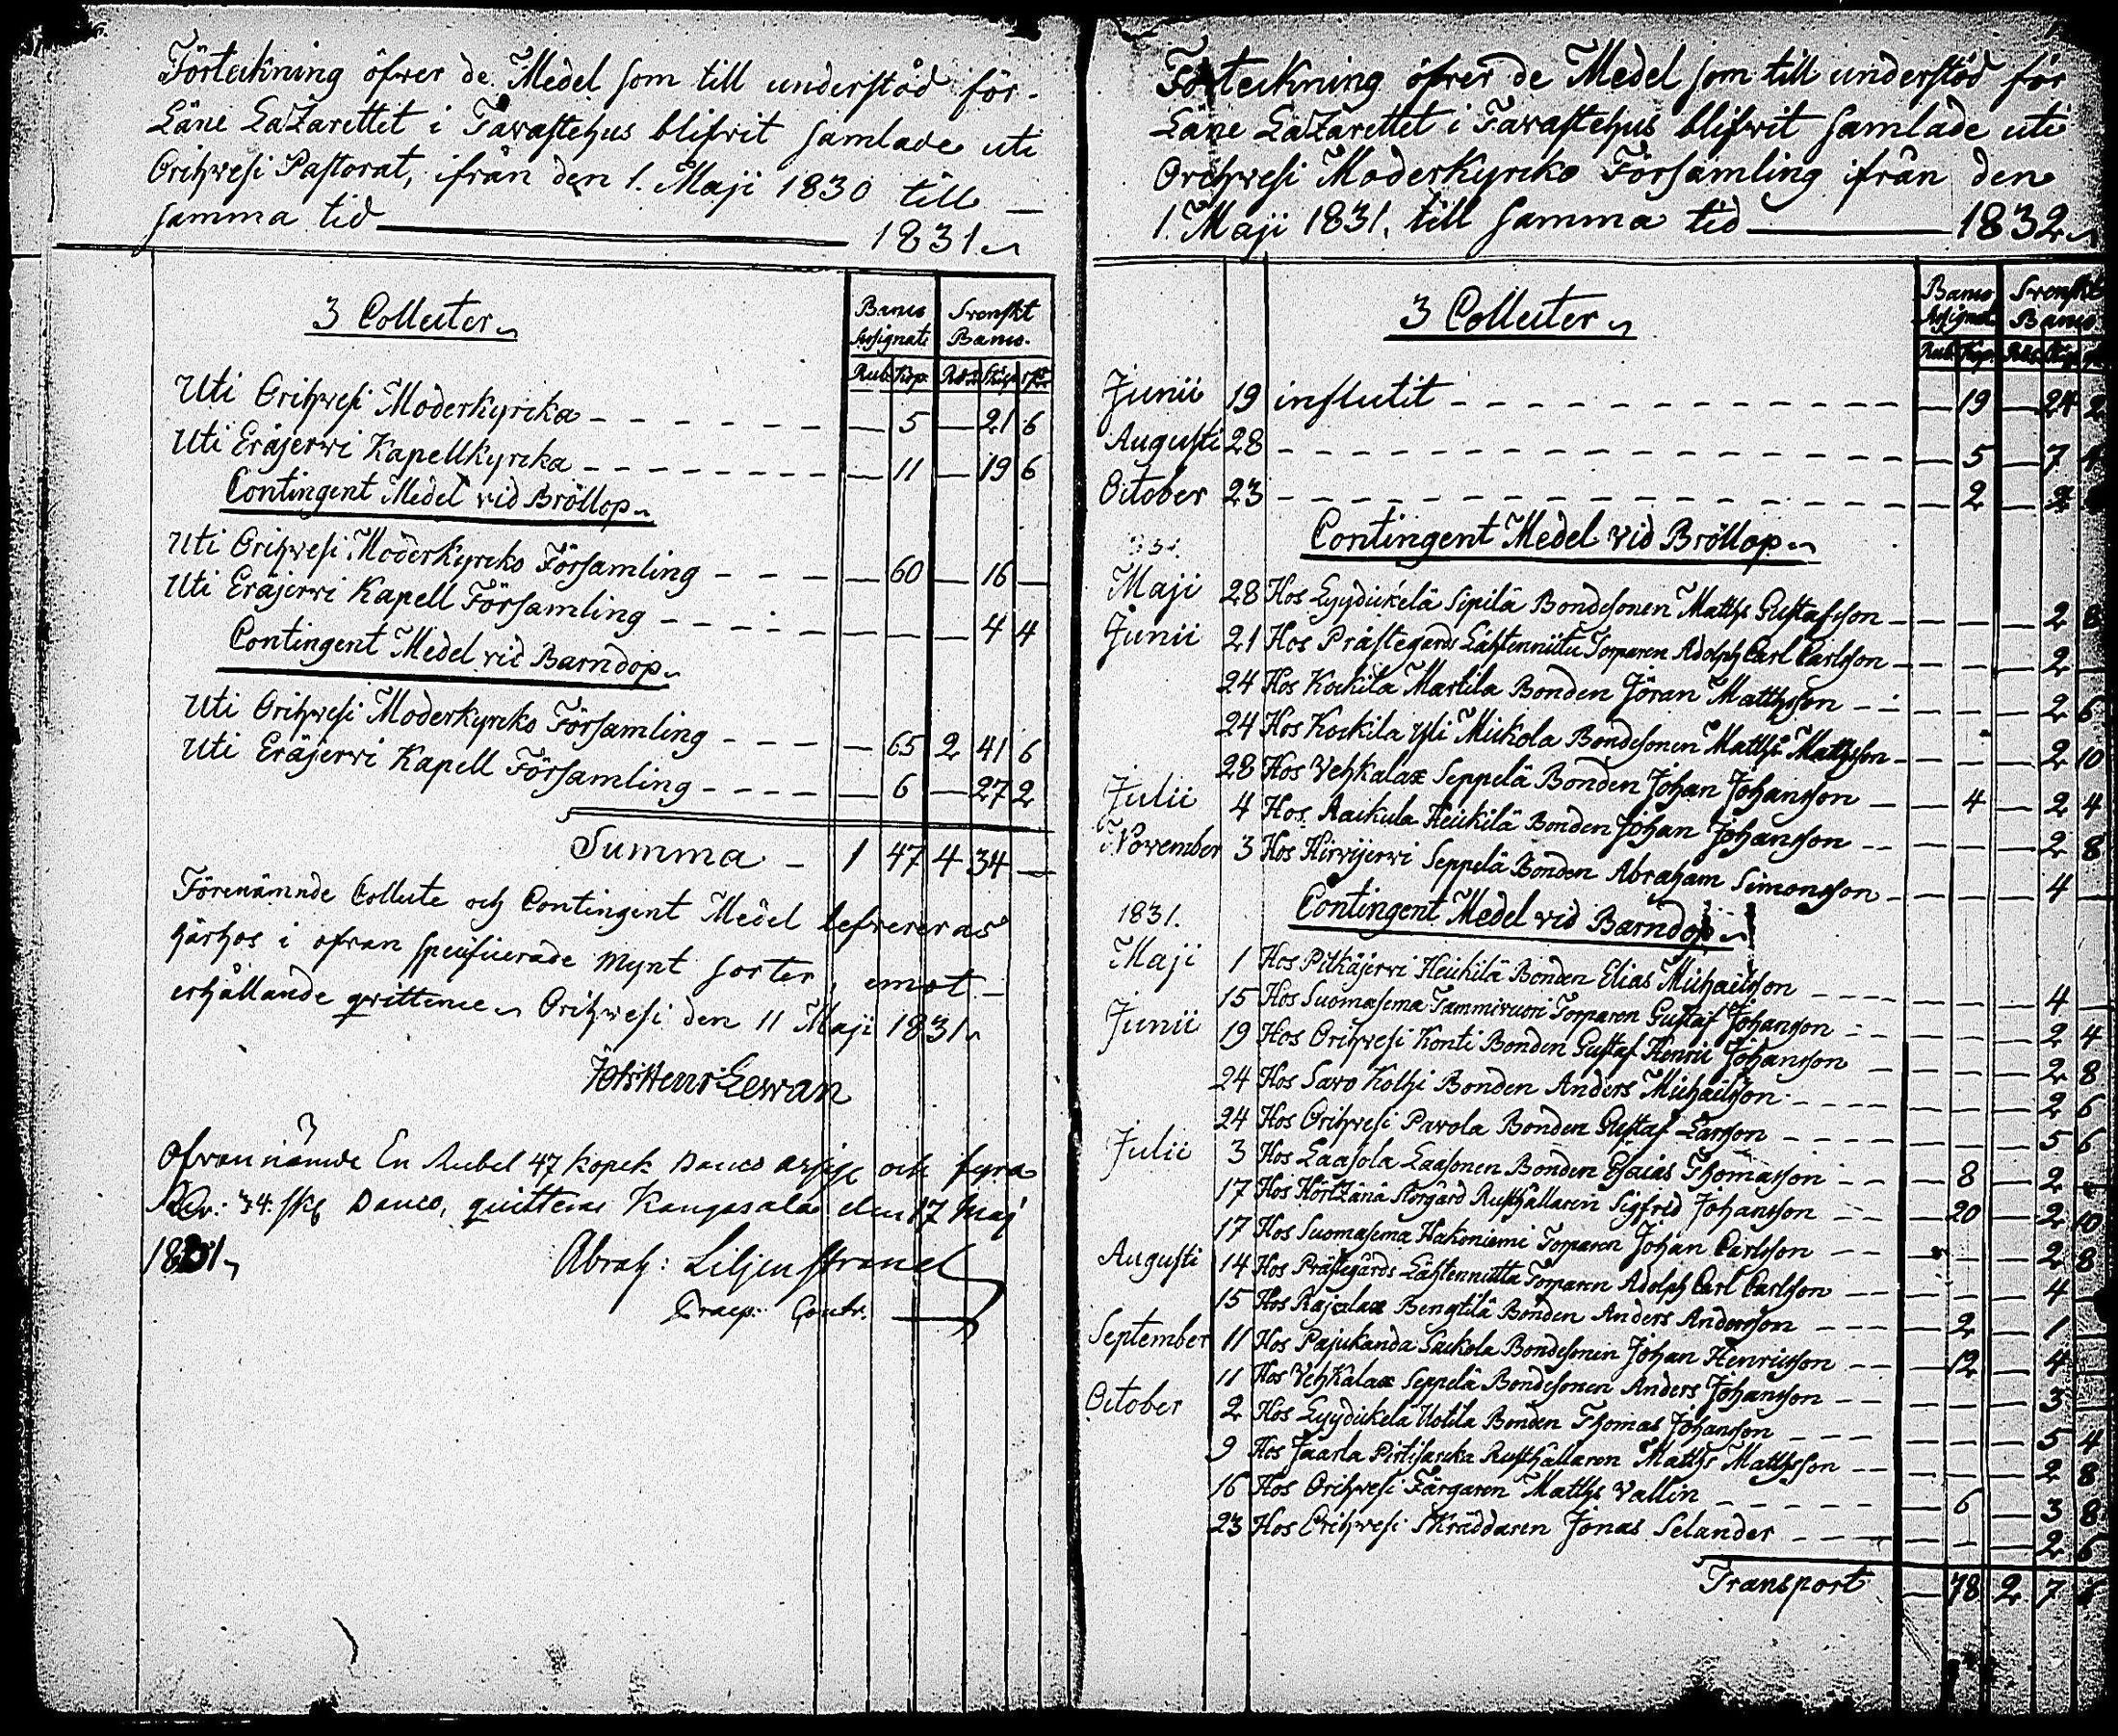 Förteckning öfver de Medel som till understöd för
Läne Lazarettet i Tavastehus blifvit samlade uti
Orihvesi Pastorat, ifrån den 1. Maji 1830 till —
samma tid — 1831.
3 Collecter
Banco Assignat. Svenskt Banco.
Rub. Kop. Rdr Skg rst
Uti Orihvesi Moderkyrcka — 5 — 21 6
Uti Eräjervi Kapellkyrcka — 11 — 19 6
Contingent Medel vid Bröllop
Uti Orihvesi Moderkyrcko Församling — 60 — 16 —
Uti Eräjervi Kapell Församling — — — 4 4
Contingent Medel vid Barndop
Uti Orihvesi Moderkyrcko Församling — 65 2 41 6
Uti Eräjervi Kapell Församling — 6 — 27 2
Summa — 1 47 4 34 —
Förenämnde Collecte och Contingent Medel lefvereras
härhos i ofvan specificerade mynt sorter, emot
erhållande qvittence. Orihvesi den 11 Maji 1831.
Joh: Henr: Lewan
Ofvannämnde En Rubel 47 kopek Banco assig: och fyra
Rdr: 34. skg Banco, quitteras Kangasala den 17 Maj
1831.
Abrah: Liljenstrand
Praep: Contr.
Förteckning öfver de Medel som till understöd för
Läne Lazarettet i Tavastehus blifvit samlade uti
Orihvesi Moderkyrcko Församling ifrån den
1. Maji 1831. till samma tid — 1832.
3 Collecter
Banco Assignat. Svenskt Banco
Rub. Kop. Rdr Skg
Junii 19 influtit — 19 — 24 2
Augusti 28 — 5 — 7
October 23 — 2 — 2
Contingent Medel vid Bröllop
1831.
Maji 28 Hos Eyydickelä Sipilä Bondesonen Matths Gustafsson — — — 2 8
Junii 21 Hos Prästegårds Lähtenniitu Torparen Adolph Carl Carlsson — — — 2 —
24 Hos Kockila Martila Bonden Jöran Matthsson — — — 2 6
24 Hos Kockila Yli Mickola Bondesonen Matths Matthsson — — — 2 10
28 Hos Vehkalax Seppelä Bonden Johan Johansson — 4 — 2 4
Julii 4 Hos Haikula Heickilä Bonden Johan Johansson — — — 2 8
November 3 Hos Hirvijervi Seppelä Bonden Abraham Simonsson — — — 4 —
Contingent Medel vid Barndop
1831.
Maji 1 Hos Pitkäjervi Heickilä Bonden Elias Michaelsson — — — 4 —
15 Hos Suomasema Tammivuori Torparen Gustaf Johanson — — — 2 4
Junii 19 Hos Orihvesi Konti Bonden Gustaf Henric Johansson — — — 2 8
24 Hos Savo Kolhi Bonden Anders Michaelsson — — — 2 6
24 Hos Orihvesi Pavola Bonden Gustaf Larsson — — — 5 6
Julii 3 Hos Laasola Laasonen Bonden Esaias Thomasson — 8 — 2
17 Hos Hörtzänä Storgård Rusthållaren Sigfred Johansson — 20 — 2 10
17 Hos Suomasema Hakoniemi Torparen Johan Carlsson — — — 2 8
Augusti 14 Hos Prästegårds Lähtenniitta Torparen Adolph Carl Carlsson — — — 4 —
15 Hos Rajalax Bengtilä Bonden Anders Andersson — 2 — 1 —
September 11 Hos Pajukanda Sackola Bondesonen Johan Henricsson — 12 — 4 —
11 Hos Vehkalax Seppelä Bondesonen Anders Johansson — — — 3 —
October 2 Hos Eyydickela Uotila Bonden Thomas Johansson — — — 5 4
9 Hos Jaarla Pirtisarcka Rusthållaren Matths Matthsson — — — 2 8
16 Hos Orihvesi Färgaren Matths Vallin — 6 — 3 8
23 Hos Orihvesi Skräddaren Jonas Selander — — — 2 6
Transport — 78 2 7